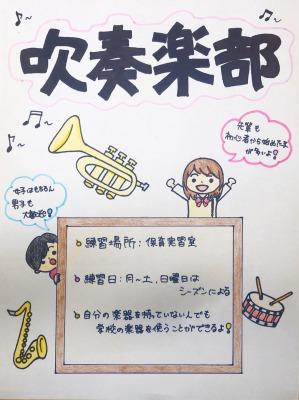 吹奏楽部
先輩も
初心者から始めた人
が多いよ！
女子はもちろん
男子も
大歓迎！
練習場所：保育実習室
練習日：月～土，日曜日は
シーズンによる
自分の楽器を持っていない人でも
学校の楽器を使うことができるよ！